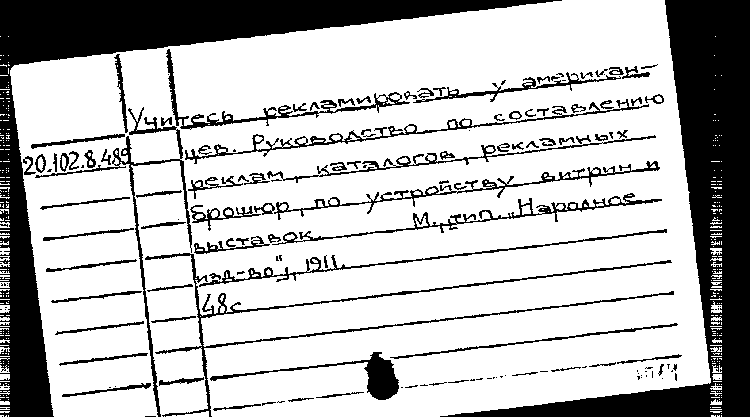 Учитесь рекламировать у американ-
20.102.8.485 цев. Руководство по составлению
реклам, каталогов, рекламных
брошюр, по устройству витрин и
выставок. М., тип. „Народное
изд-во", 1911.
48с